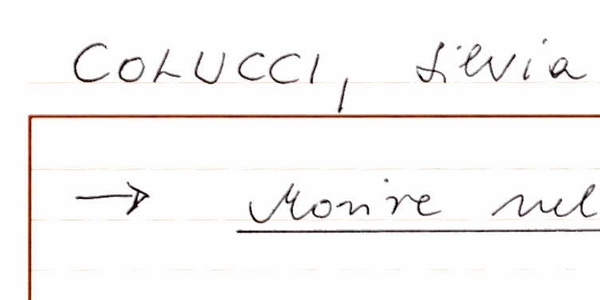 COLUCCI, Silvia
→ Morire nel